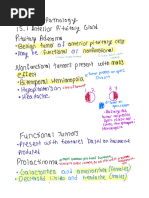 Pathology
15.1 Anterior Pituitary Gland
Pituitary Adenoma
• Benign tumor of anterior pituitary cells
• May be functional or nonfunctional
Nonfunctional tumors present with mass
effect
• Bitemporal hemianopia
• Hypopituitarism
• Headache
Functional Tumors
- Present with features based on hormone
produced
Prolactinoma
• Galactorrhea and amenorrhea (females)
• Decreased libido and headache (males)